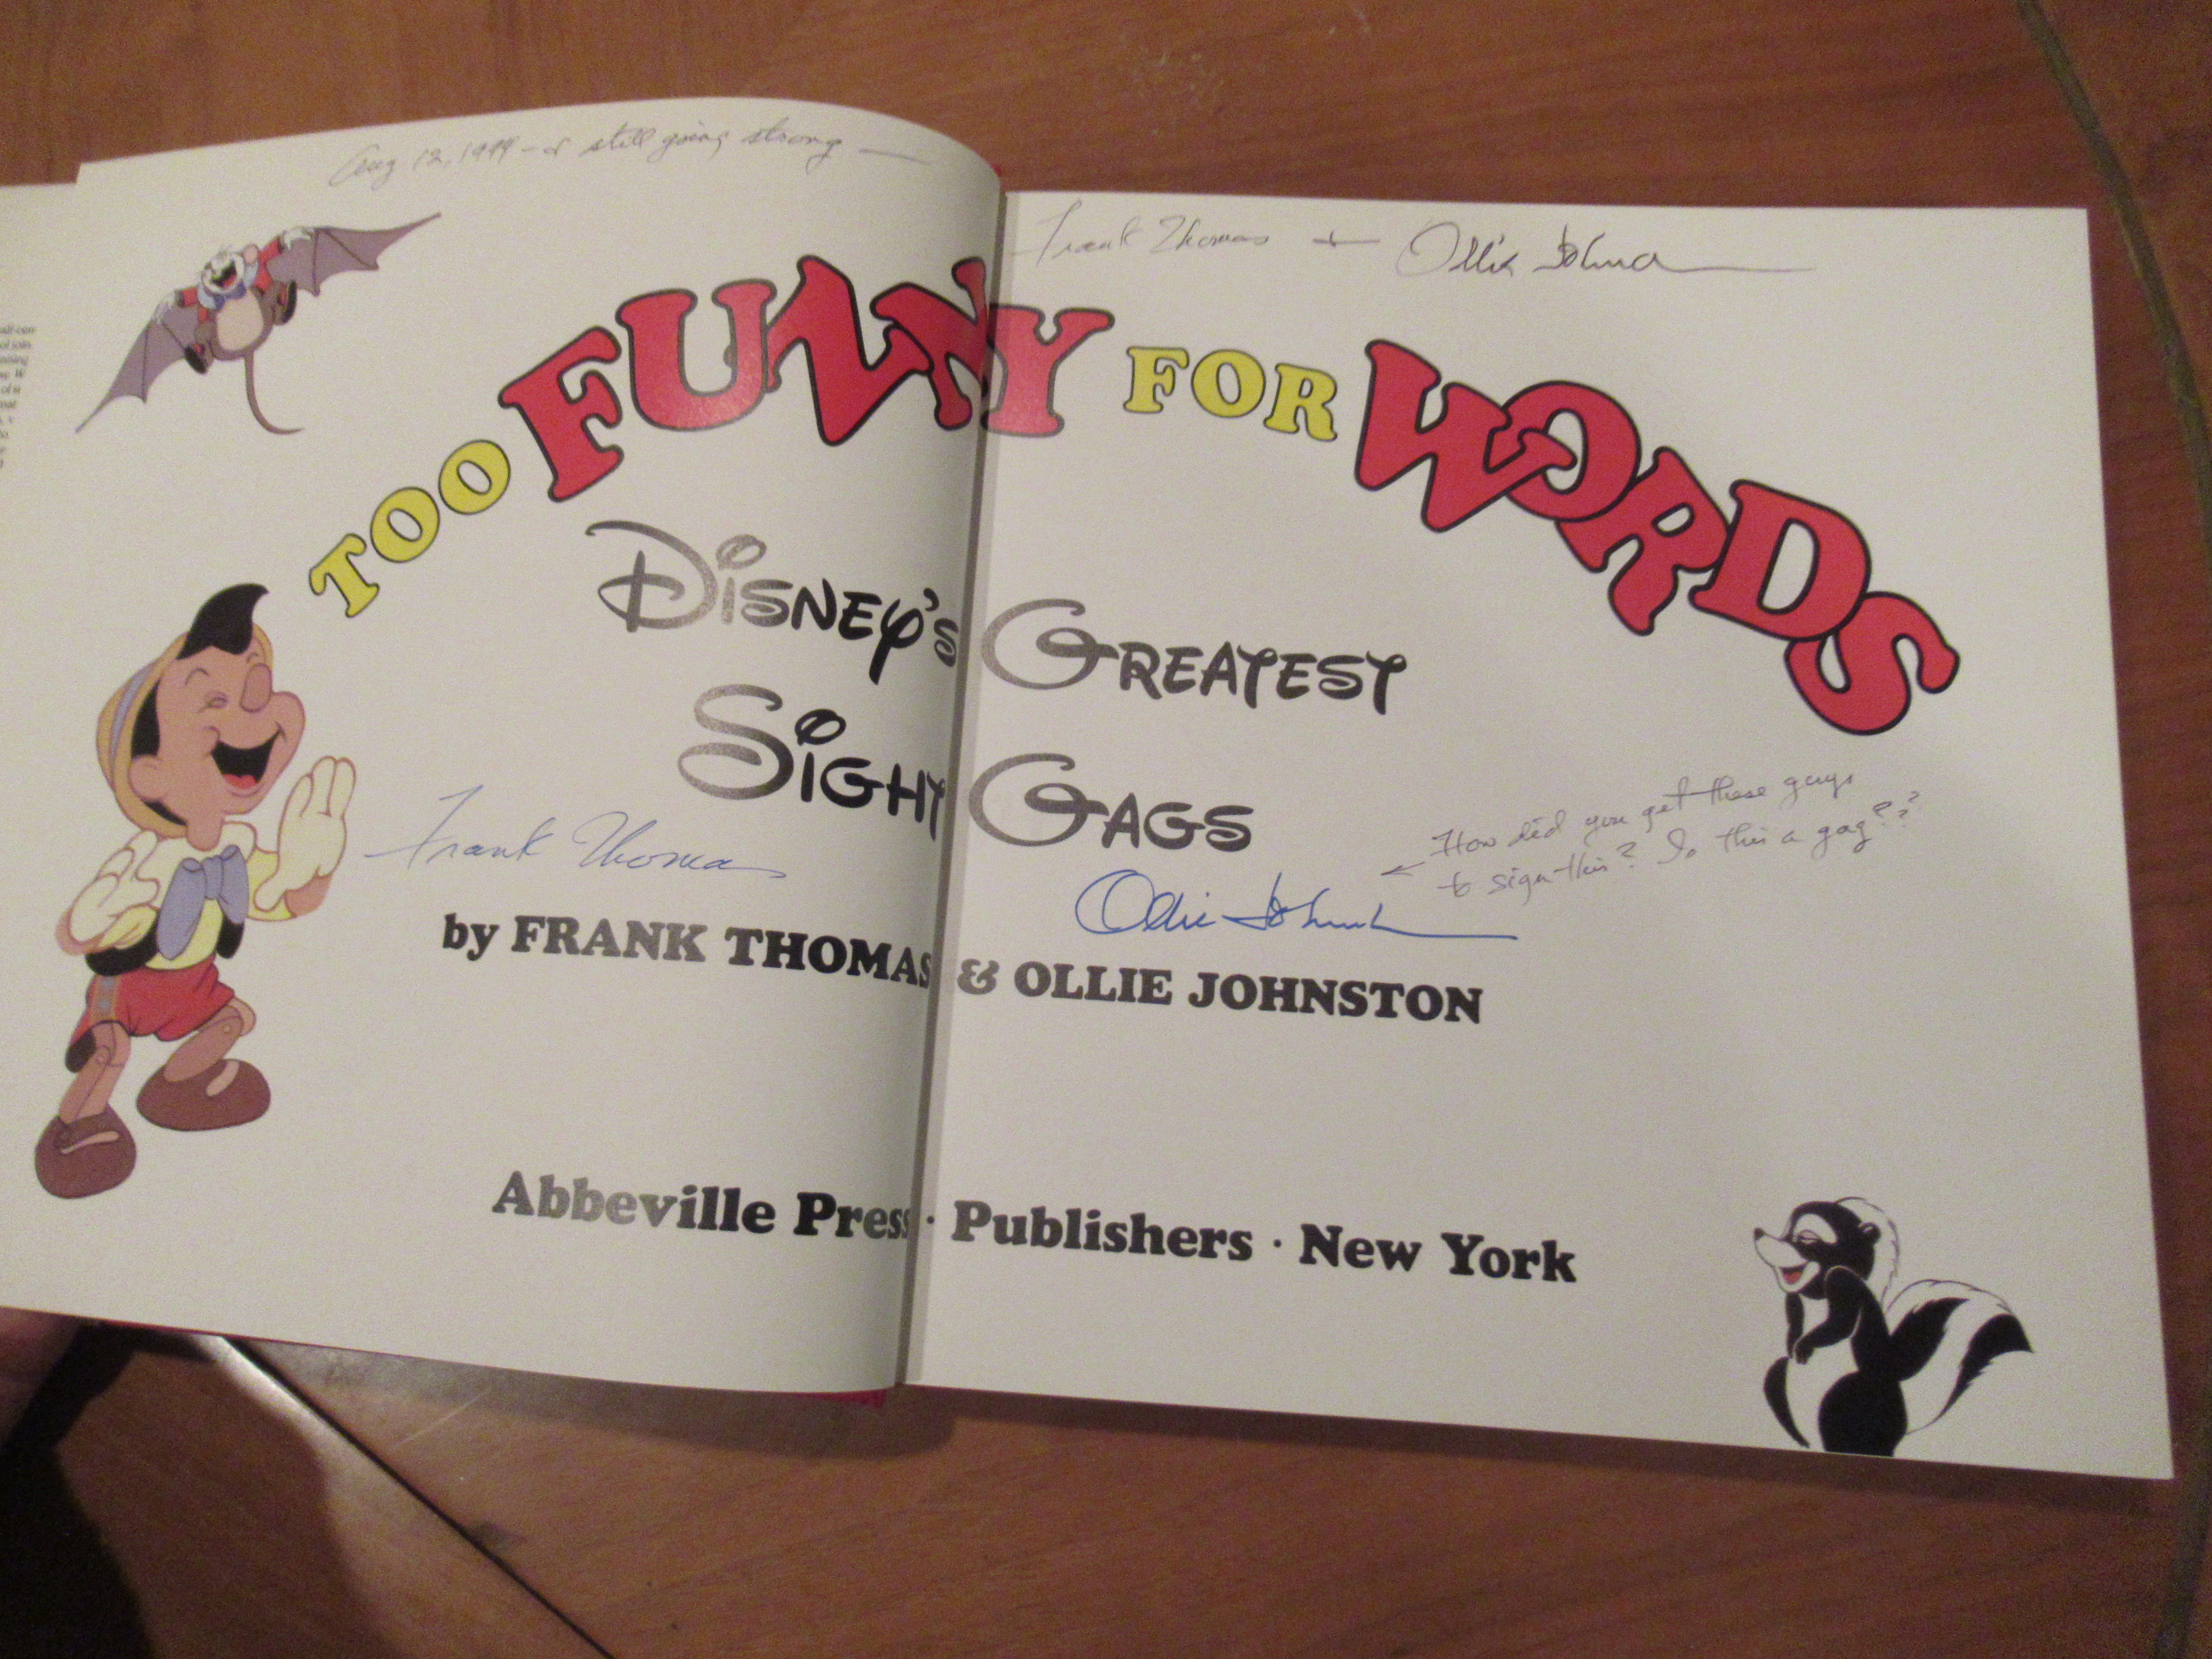 Aug 12, 1999 - & still going strong —
Frank Thomas + Ollie Johnston
TOO FUNNY FOR WORDS
DISNEY'S GREATEST
SIGHT GAGS
How did you get these guys
← to sign this? Is this a gag??
Frank Thomas Ollie Johnston
by FRANK THOMAS & OLLIE JOHNSTON
Abbeville Press · Publishers · New York